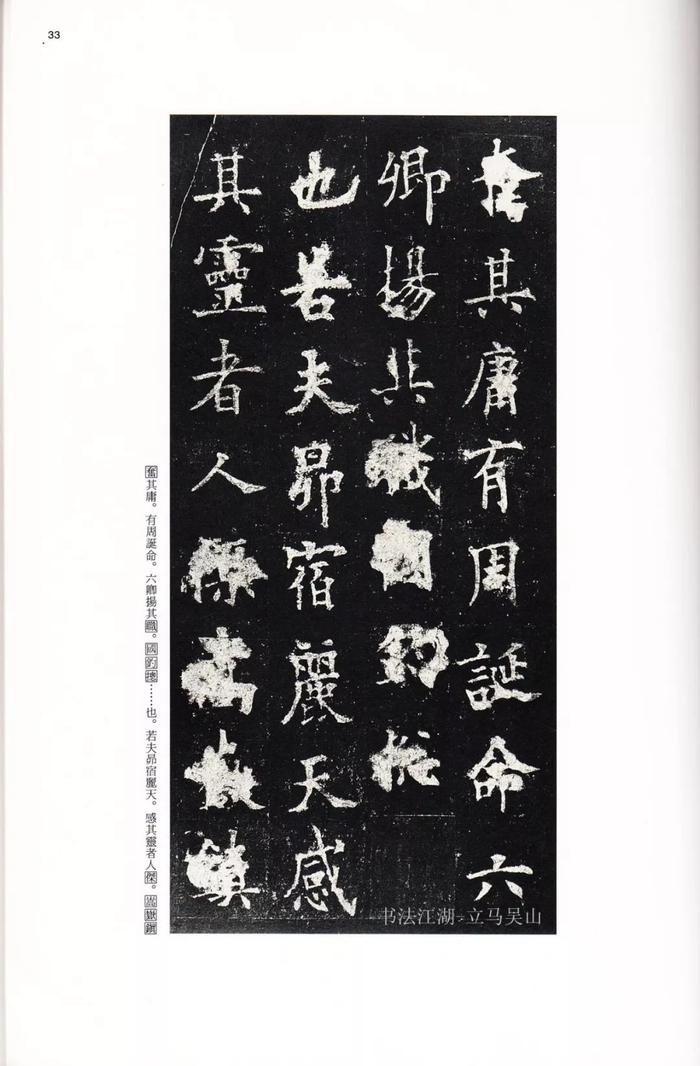 33
奮其庸有周誕命六
卿揚其職國鈞
也若夫昴宿麗天感
其靈者人傑嵩嶽鎮
奮其庸。有周誕命。六卿揚其職。國鈞壞……也。若夫昴宿麗天。感其靈者人傑。嵩嶽鎮
书法江湖-立马吴山